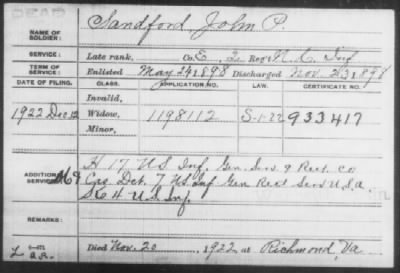 DEAD
NAME OF SOLDIER: Sandford, John P.
SERVICE: Late rank, Co. E, 2 Reg't N. C. Inf
TERM OF SERVICE: Enlisted May 24 1898 Discharged Nov. 23 1898
DATE OF FILING. CLASS. APPLICATION NO. LAW. CERTIFICATE NO.
Invalid,
1922 Dec 12 Widow, 1198112 S-1-22 933417
Minor,
H 17 U.S. Inf. Gen. Serv. 9 Rect. Co
ADDITIONAL SERVICES: Cas Det. 7 U.S. Inf Gen Rect Serv U.S.A.
4 U.S. Inf.
REMARKS:
Died Nov. 20, 1922 at Richmond, Va